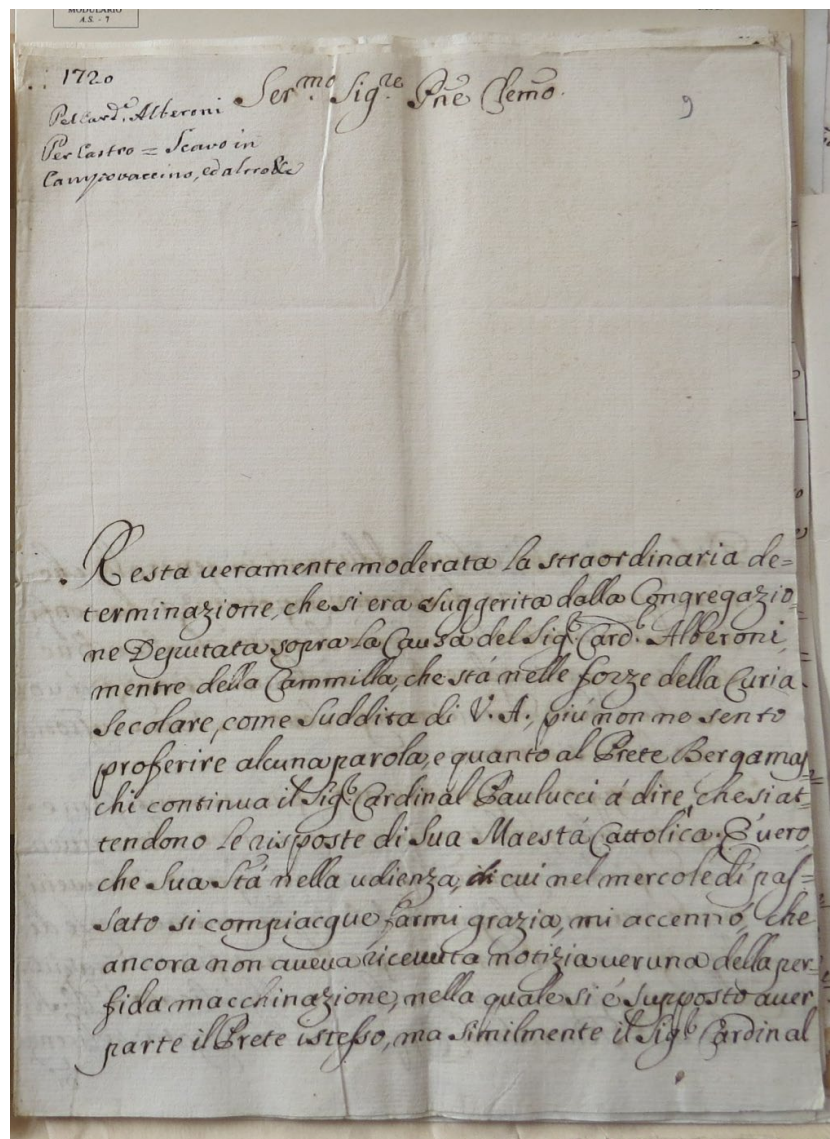 MODULARIO
A.S. - 7
1720
Pel Card.e Alberoni
Per Castro = Scavo in
Campovaccino, ed altro &c
Ser.mo Sig.re P͞ne Clemo.
9
Resta veramente moderata la straordinaria de=
terminazione, che si era suggerita dalla Congregazio=
ne Deputata sopra la Causa del Sig.r Card.l Alberoni,
mentre della Cammilla, che stá nelle forze della Curia
Secolare, come Suddita di V. A., piú non ne sento
proferire alcuna parola, e quanto al Prete Bergamas=
chi continua il Sig.r Cardinal Paulucci á dire, che si at=
tendono le risposte di Sua Maestá Cattolica. É vero,
che Sua Stá nella udienza, di cui nel mercoledí pas=
sato si compiacque farmi grazia, mi accennó, che
ancora non aveva ricevuta notizia veruna della per=
fida macchinazione, nella quale si é supposto aver
parte il Prete istesso, ma similmente il Sig.r Cardinal